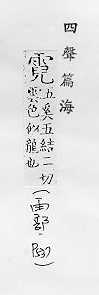 四聲篇海
霓五奚五結二切
雲色似龍也
(雨部,P537)